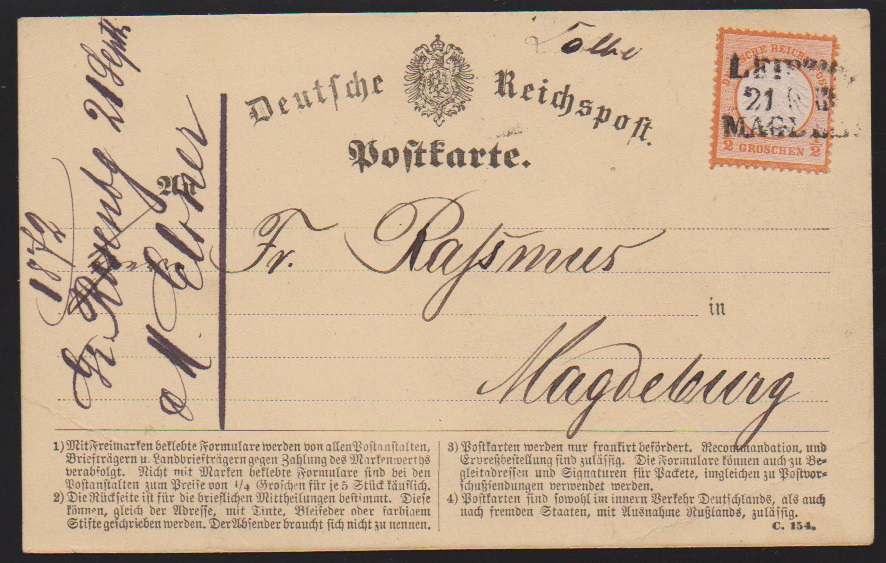 Deutsche Reichspost.
Postkarte.
DEUTSCHE REICHSPOST
1/2 GROSCHEN 1/2
LEIPZIG
21
MAGDEB
1872
21 Sept.
M. Ebner
An
Herrn Fr. Rassmus
in
Magdeburg
1) Mit Freimarken beklebte Formulare werden von allen Postanstalten,
Briefträgern u. Landbriefträgern gegen Zahlung des Markenwerths
verabfolgt. Nicht mit Marken beklebte Formulare sind bei den
Postanstalten zum Preise von 1/4 Groschen für je 5 Stück käuflich.
2) Die Rückseite ist für die brieflichen Mittheilungen bestimmt. Diese
können, gleich der Adresse, mit Tinte, Bleifeder oder farbigem
Stifte geschrieben werden. Der Absender braucht sich nicht zu nennen.
3) Postkarten werden nur frankirt befördert. Recommandation, und
Expreßbestellung sind zulässig. Die Formulare können auch zu Be-
gleitadressen und Signaturen für Packete, imgleichen zu Postvor-
schußsendungen verwendet werden.
4) Postkarten sind sowohl im innern Verkehr Deutschlands, als auch
nach fremden Staaten, mit Ausnahme Rußlands, zulässig.
C. 154.